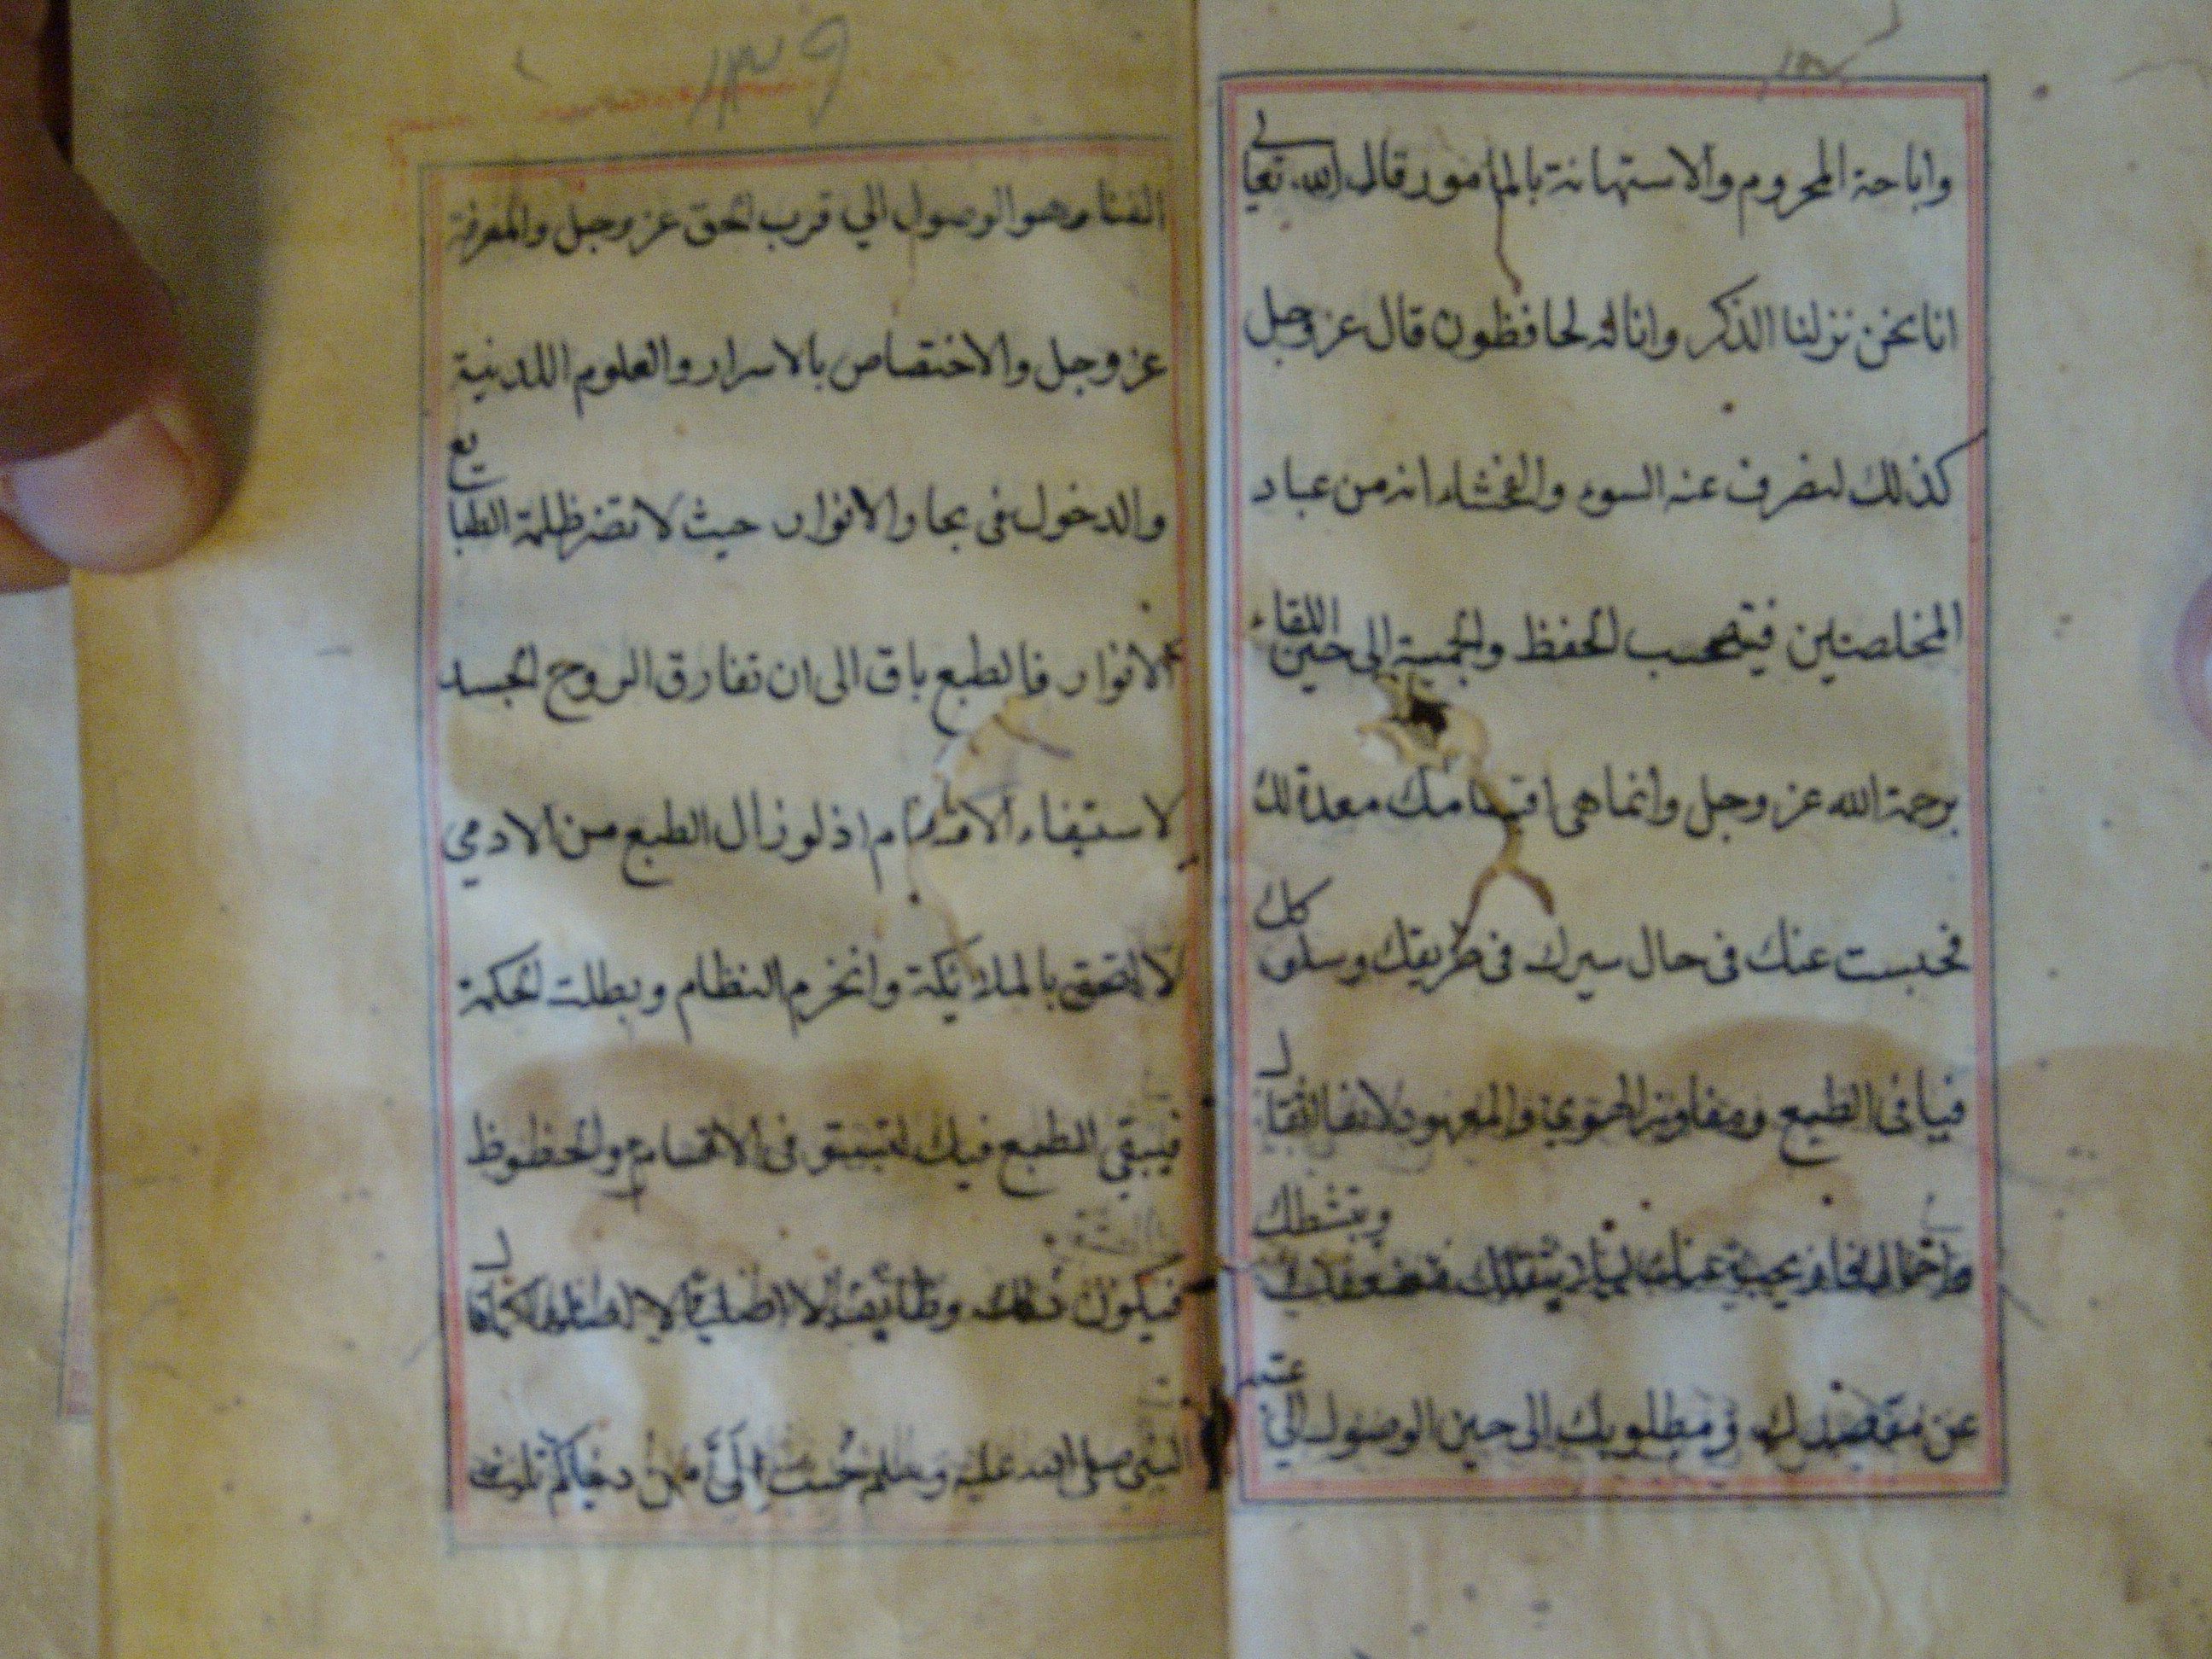 واباحة المحروم والاستهانة بالمامور قال الله تعالى
انا نحن نزلنا الذكر وانا له لحافظون قال عز وجل
كذلك لنصرف عنه السوء والفحشاء انه من عباد
المخلصين الحفظ والحمية الى حين اللقاء
برحمة الله عز وجل وانما هى اقسامك معدة لك
فحبست عنك فى حال سيرك فى طريقك وسلوكك
فيافى الطبع ومفاوز الهوي والمعهود لانها اثقال
واحمال
عن مقصدك ومطلوبك الى حين الوصول الى عتبة
١٣٩
الفناء وهو الوصول الي قرب الحق عز وجل والمعرفة
عز وجل والاختصاص بالاسرار والعلوم اللدنية
والدخول فى بحار الانوار حيث لا تضر ظلمة الطبايع
الانوار فالطبع باق الى ان تفارق الروح الجسد
لاستيفاء الاقسام اذ لو زال الطبع من الادمي
لا لتحق بالملائكة وانخرم النظام وبطلت الحكمة
فيبقي الطبع فيك الاقسام والحظوظ
فيكون ذلك
النبى صلى الله عليه وسلم حُبب إلَيَّ مِنْ دنياكم ثلاث